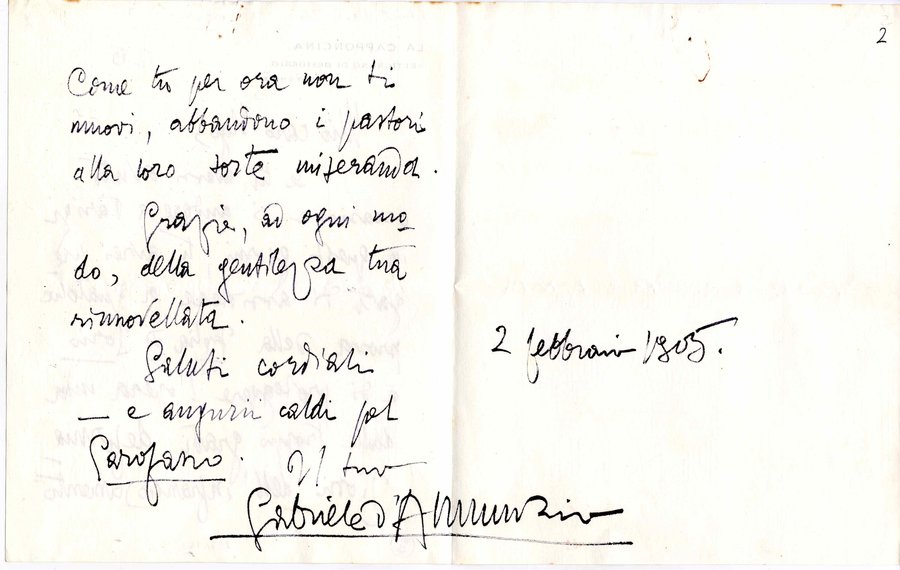 2
Come tu per ora non ti
muovi, abbandono i pastori
alla loro sorte miseranda.
Grazie, ad ogni mo-
do, della gentilezza tua
rinnovellata.
Saluti cordiali
— e augurii caldi pel
Garofano. Il tuo
Gabriele d'Annunzio
2 febbraio 1905.
LA CAPPONCINA